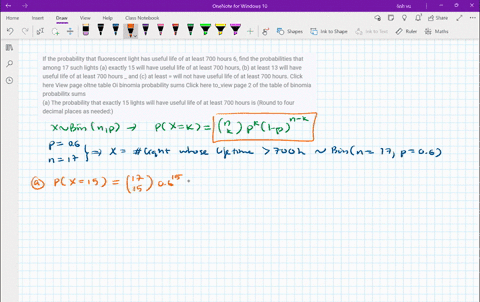 OneNote for Windows 10
Home Insert Draw View Help Class Notebook
Shapes Ink to Shape Ink to Text
If the probability that fluorescent light has useful life of at least 700 hours 6, find the probabilities that
among 17 such lights (a) exactly 15 will have useful life of at least 700 hours, (b) at least 13 will have
useful life of at least 700 hours , and (c) at least > will not have useful life of at least 700 hours. Click
here View page oftne table Oi binomia probability sums Click here to_view page 2 of the table of binomia
probabilitx sums
(a) The probability that exactly 15 lights will have useful life of at least 700 hours is (Round to four
decimal places as needed:)
X~Bin(n,p) ⇒ P(X=k) = (n k) p^k (1-p)^{n-k}
p = 0.6
n = 17 } ⇒ X = # light whose lifetime > 700h ~ Bin(n = 17, p = 0.6)
(a) P(X=15) = (17 15) 0.6^15 .